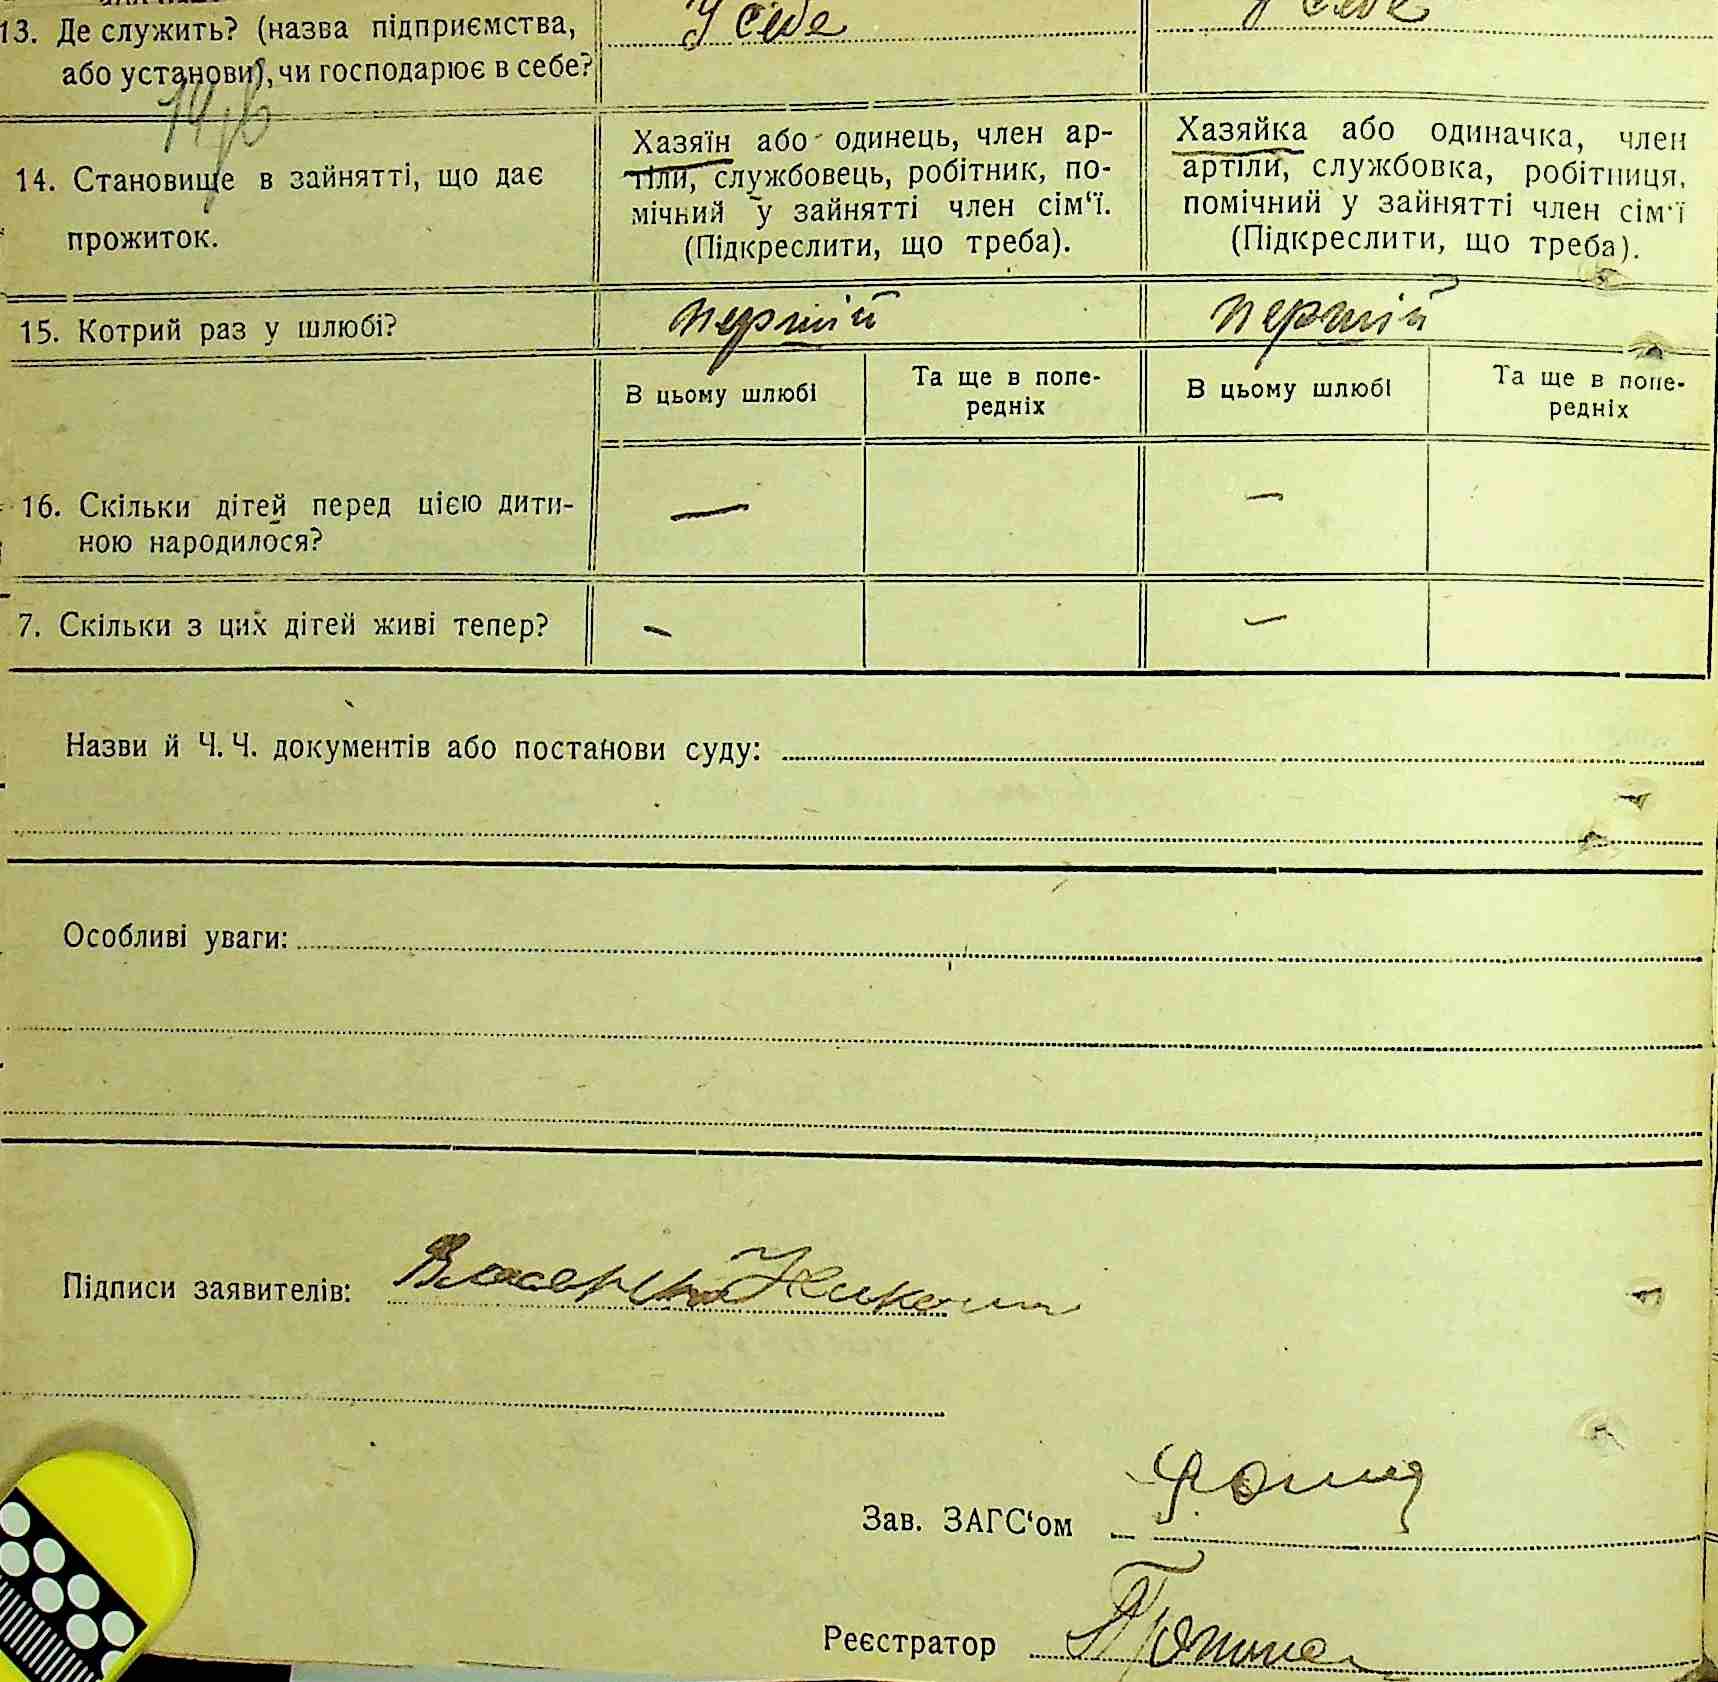 13. Де служить? (назва підприємства,
або установи), чи господарює в себе?
У себе
У себе
14. Становище в зайнятті, що дає
прожиток.
Хазяїн або одинець, член ар-
тіли, службовець, робітник, по-
мічний у зайнятті член сім‘ї.
(Підкреслити, що треба).
Хазяйка або одиначка, член
артіли, службовка, робітниця,
помічний у зайнятті член сім‘ї
(Підкреслити, що треба).
15. Котрий раз у шлюбі?
перший
перший
В цьому шлюбі
Та ще в попе-
редніх
В цьому шлюбі
Та ще в попе-
редніх
16. Скільки дітей перед цією дити-
ною народилося?
—
—
7. Скільки з цих дітей живі тепер?
-
-
Назви й Ч. Ч. документів або постанови суду:
Особливі уваги:
Підписи заявителів:
Зав. ЗАГС‘ом
Реєстратор